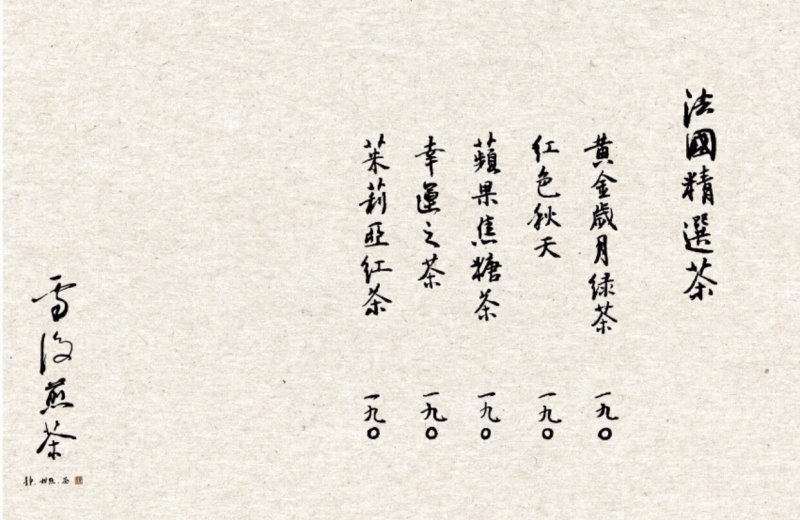 法國精選茶
黃金歲月绿茶 一九〇
红色秋天 一九〇
蘋果焦糖茶 一九〇
幸運之茶 一九〇
茱莉亞红茶 一九〇
雪後煎茶